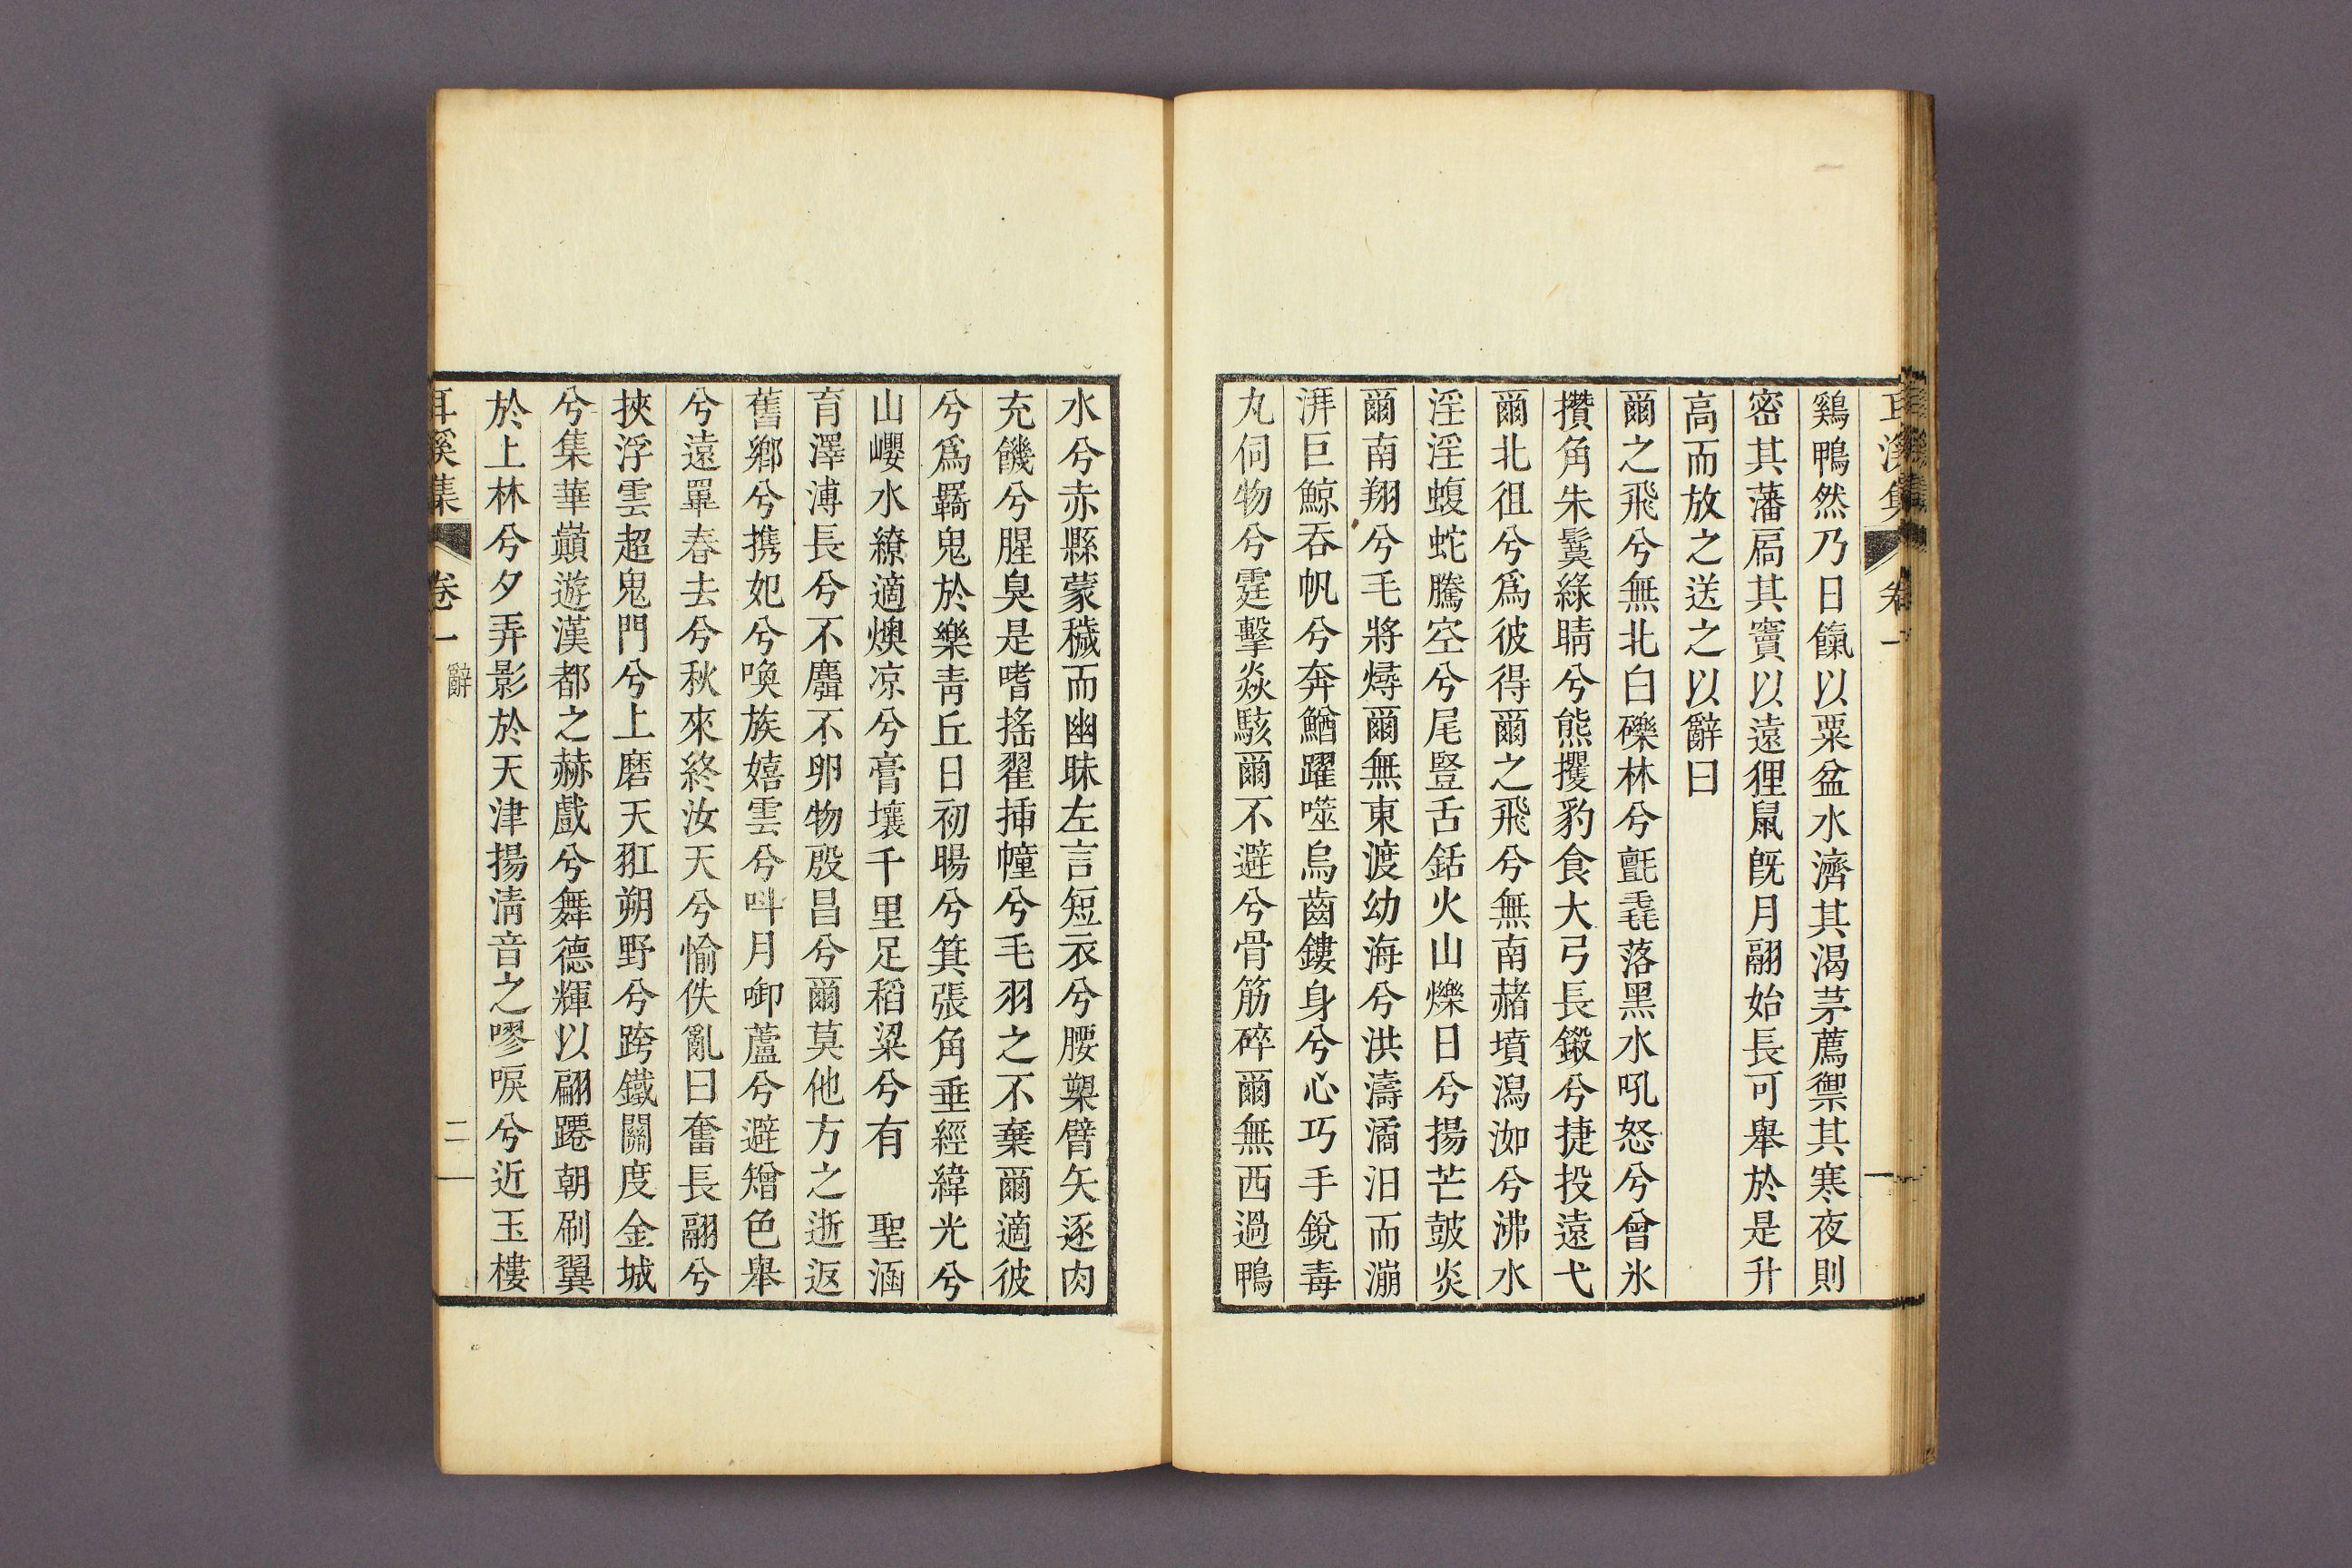 耳溪集 卷一
鷄鴨然乃日餼以粟盆水濟其渴茅薦禦其寒夜則
密其藩扃其竇以遠狸鼠旣月翮始長可舉於是升
高而放之送之以辭曰
爾之飛兮無北白礫林兮氈毳落黑水吼怒兮曾氷
攢角朱鬓綠睛兮熊攫豹食大弓長鎩兮捷投遠弋
爾北徂兮爲彼得爾之飛兮無南赭墳潟洳兮沸水
淫淫蝮蛇騰空兮尾豎舌銛火山爍日兮揚芒皷炎
爾南翔兮毛將燖爾無東渡幼海兮洪濤潏汨而漰
湃巨鯨吞帆兮奔鰌躍噬烏齒鏤身兮心巧手銳毒
丸伺物兮霆擊焱駭爾不避兮骨筋碎爾無西過鴨
水兮赤縣蒙穢而幽昧左言短衣兮腰槊臂矢逐肉
充饑兮腥臭是嗜搖翟揷幢兮毛羽之不棄爾適彼
兮爲羇鬼於樂靑丘日初暘兮箕張角垂經緯光兮
山巊水繚適燠凉兮膏壤千里足稻粱兮有 聖涵
育澤溥長兮不麛不卵物殷昌兮爾莫他方之逝返
舊鄕兮携妃兮喚族嬉雲兮呌月啣蘆兮避矰色舉
兮遠罼春去兮秋來終汝天兮愉佚亂曰奮長翮兮
挾浮雲超鬼門兮上磨天㧏朔野兮跨鐵關度金城
兮集華巓遊漢都之赫戲兮舞德輝以翩躚朝刷翼
於上林兮夕弄影於天津揚淸音之嘐唳兮近玉樓
耳溪集 卷一 辭 二